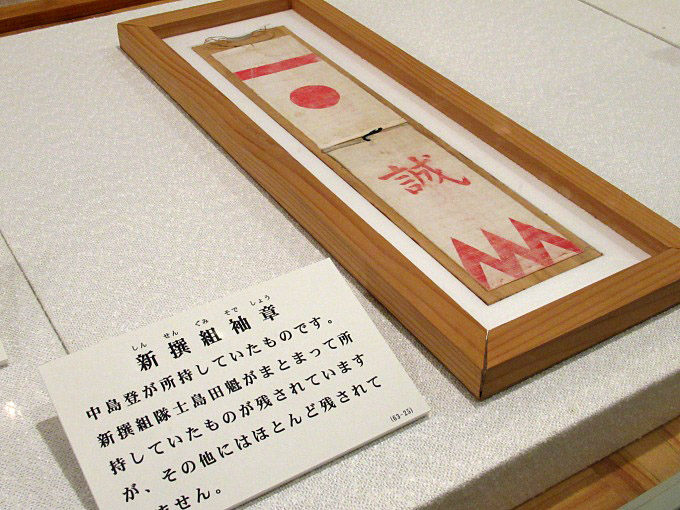 誠
しん せん ぐみ そで しょう
新撰組袖章
中島登が所持していたものです。
新撰組隊士島田魁がまとまって所
持していたものが残されています
が、その他にはほとんど残されて
ません。
(63-23)